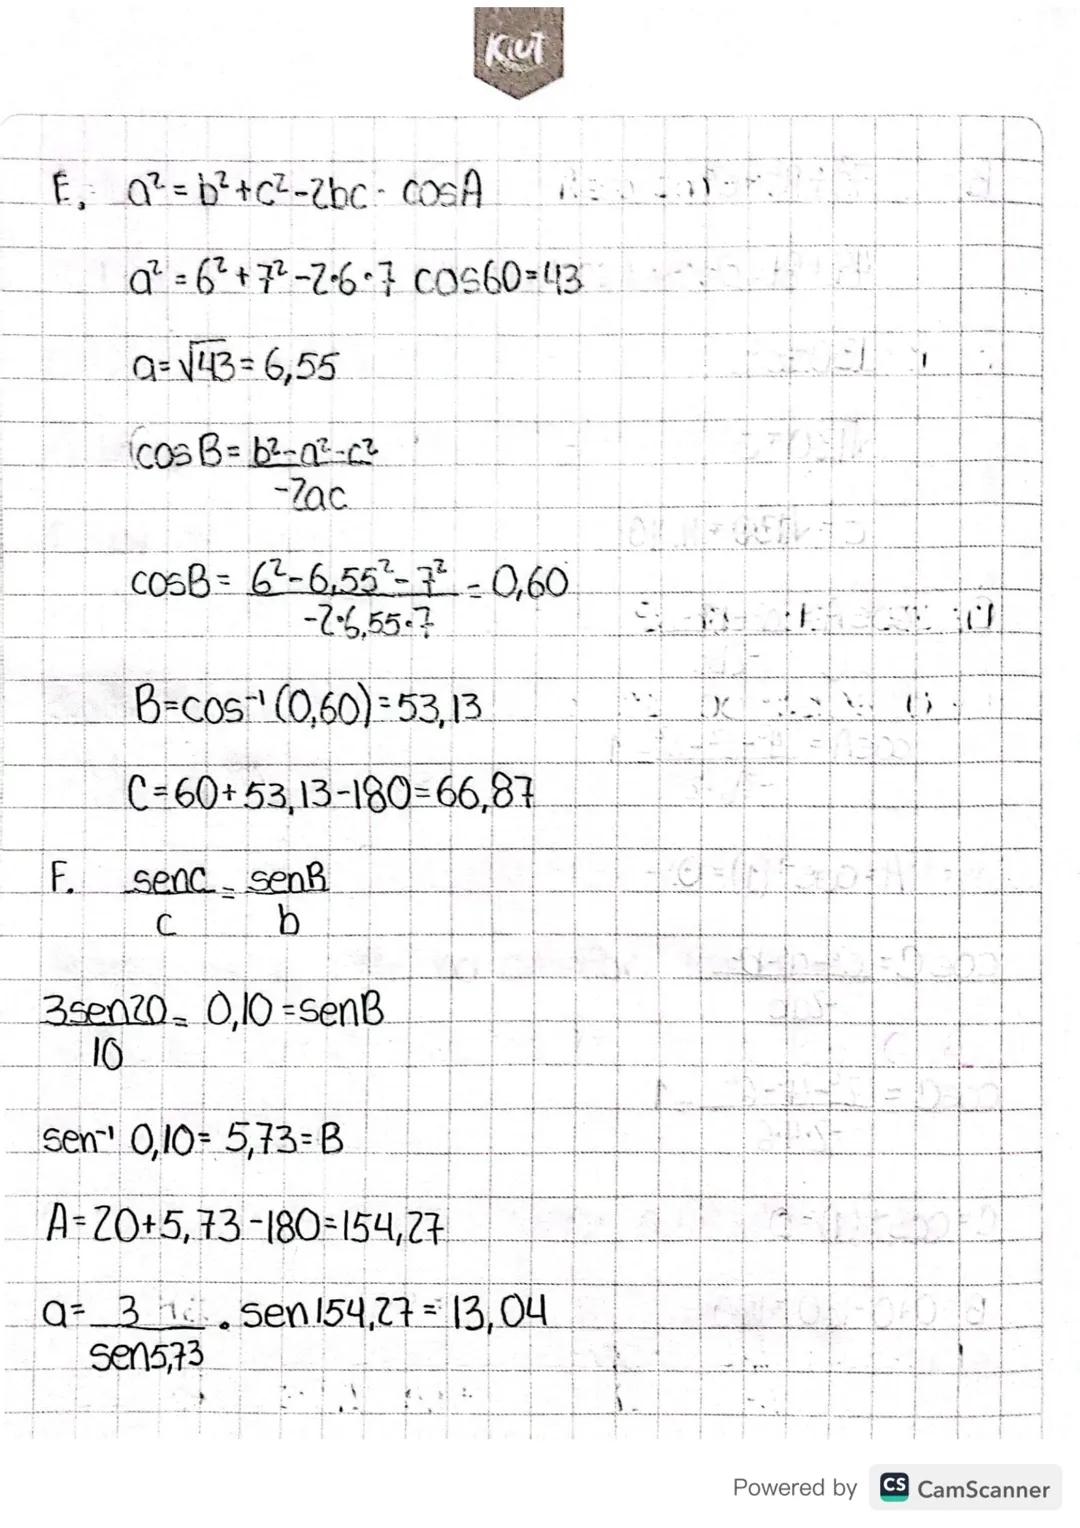 Kiut
E. a² = b² + c² - 2bc · cosA
a² = 6² + 7² - 2·6·7 cos60 = 43
a = √43 = 6,55
cosB = b² - a² - c²
-2ac
cosB = 6² - 6,55² - 7² = 0,60
-2·6,55·7
B = cos⁻¹ (0,60) = 53,13
C = 60 + 53,13 - 180 = 66,87
F. senC = senB
c b
3sen20 = 0,10 = senB
10
sen⁻¹ 0,10 = 5,73 = B
A = 20 + 5,73 - 180 = 154,27
a = 3 · sen154,27 = 13,04
sen5,73
Powered by CS CamScanner